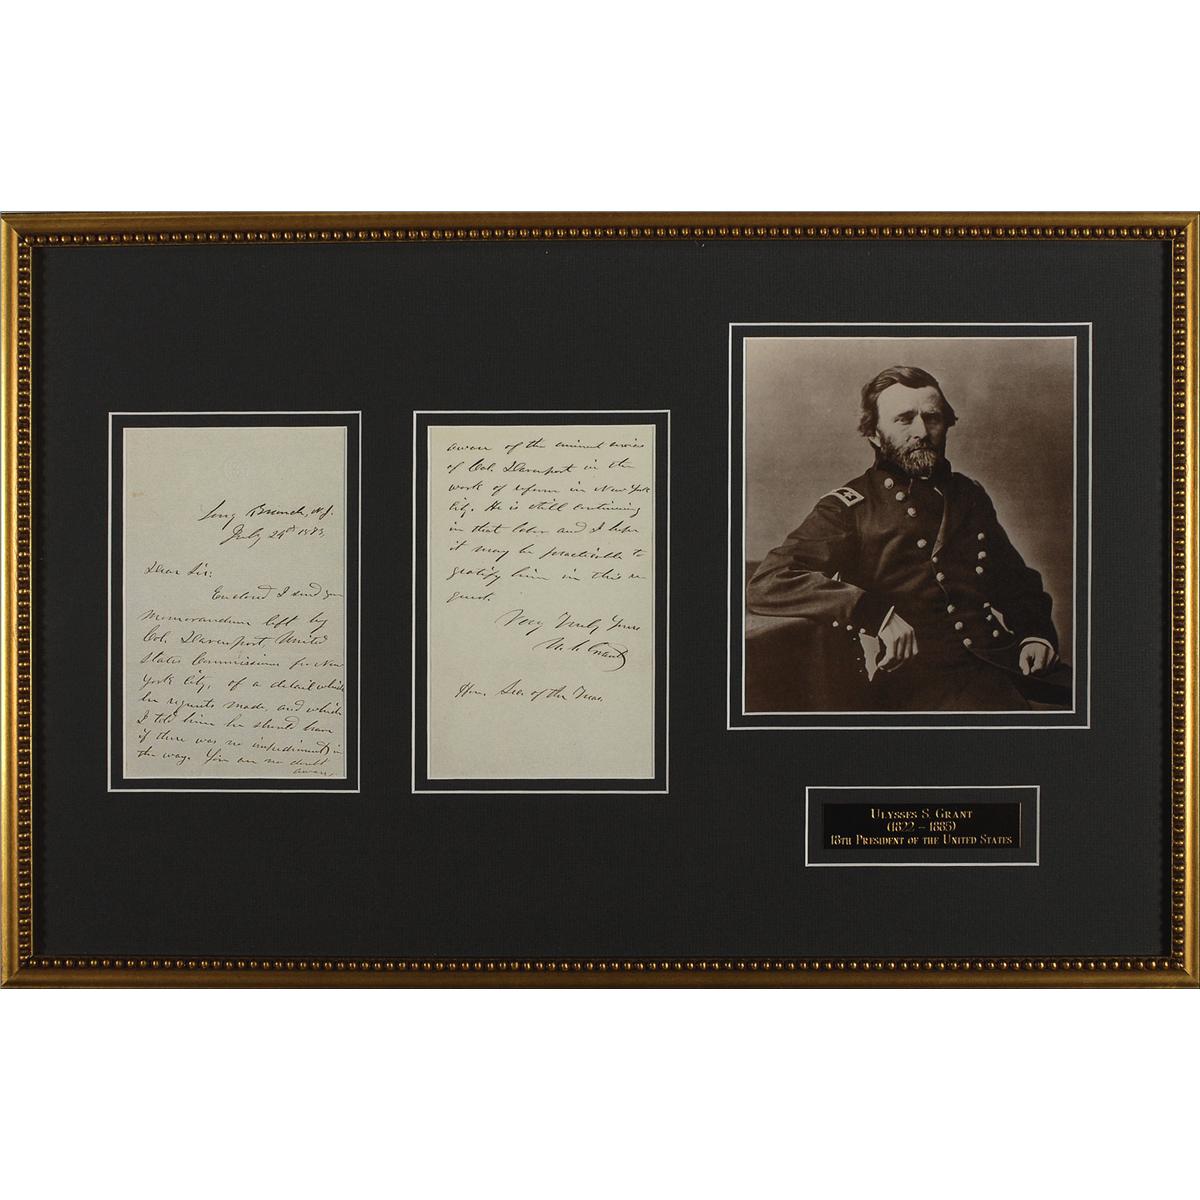 Long Branch, N.J.
July 24th 1873
Dear Sir:
Enclosed I send you
Memorandum left by
Col. Davenport, United
States Commissioner for New
York City, of a detail which
he requests made, and which
I told him he should have
if there was no impediment in
the way. You are no doubt
aware
aware of the eminent services
of Col. Davenport in the
work of reform in New York
City. He is still continuing
in that labor and I hope
it may be practicable to
gratify him in this re-
quest.
Very Truly Yours
U. S. Grant
Hon. Sec. of the Treas.
ULYSSES S. GRANT
(1822 – 1885)
18TH PRESIDENT OF THE UNITED STATES